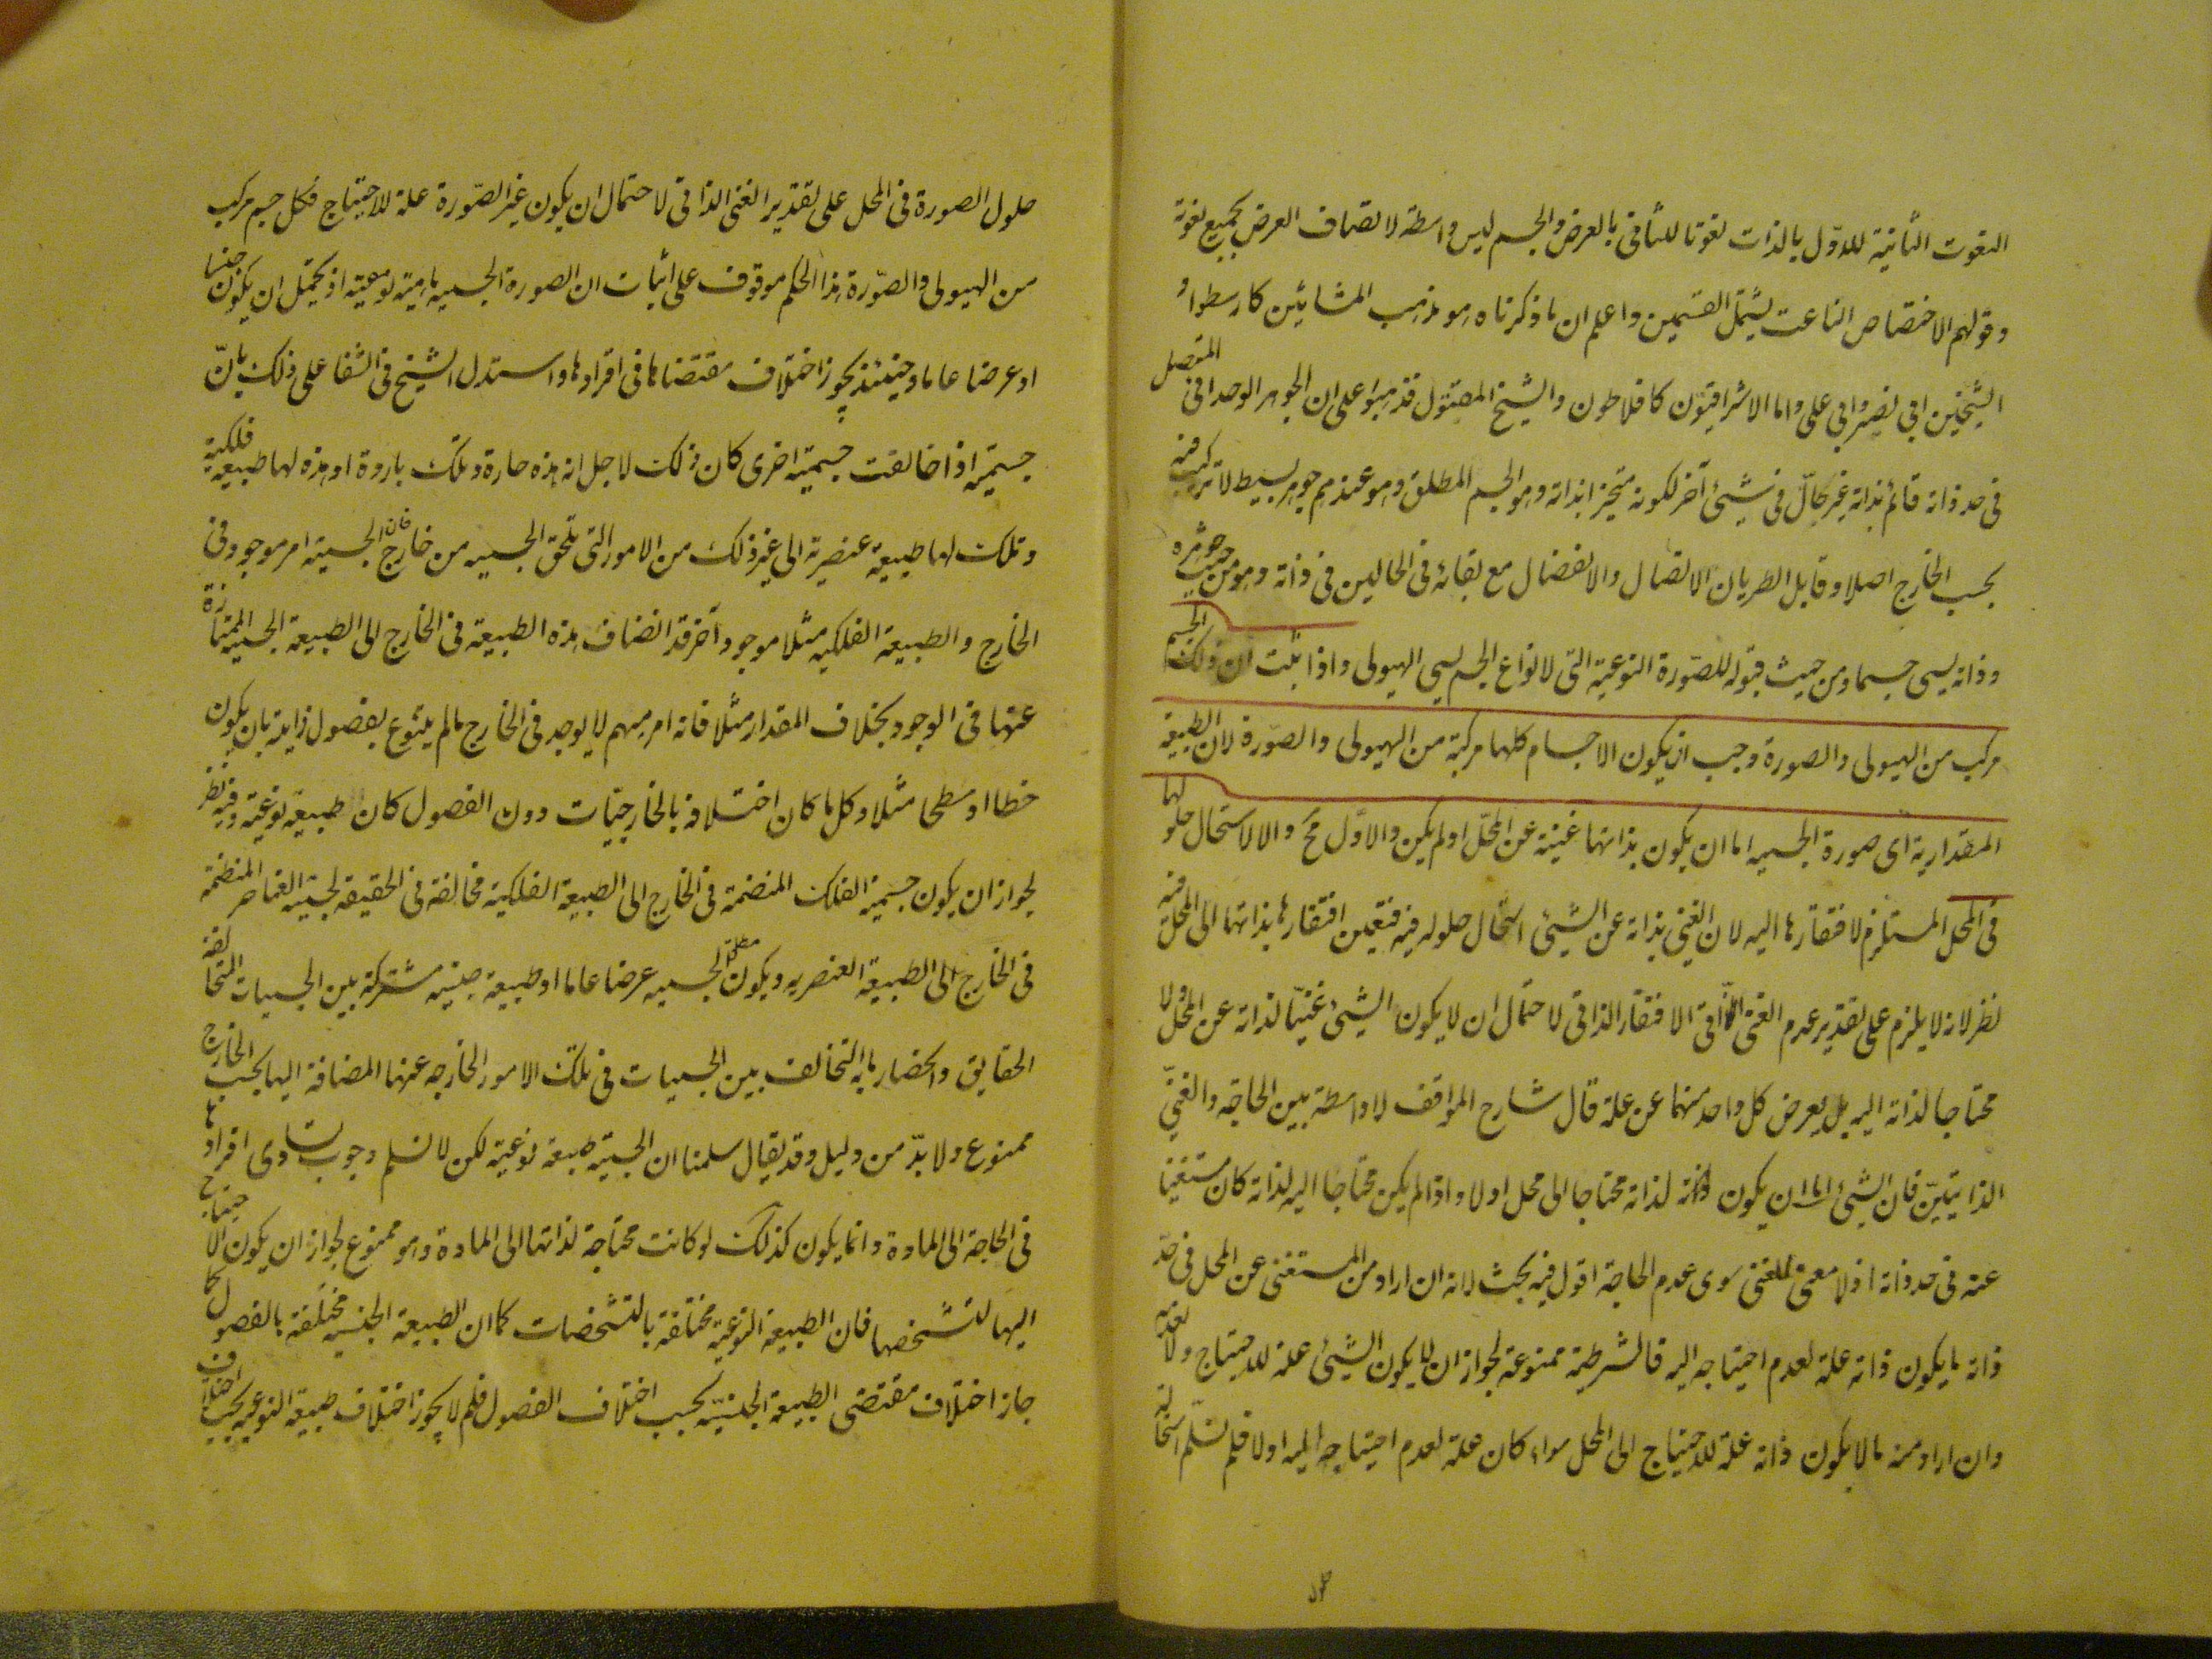 النعوت الثانية للاوّل بالذات نعوتا للثانى بالعرض والجسم ليس واسطة لاتصاف العرض بجميع نعوته
وقولهم الاختصاص الناعت يشتمل القسمين واعلم ان ما ذكرناه هو مذهب المشائين كارسطو و
الشيخين ابى نصر وابى على واما الاشراقيون كافلاطون والشيخ المقتول فذهبوا على ان الجوهر الوحدانى المتصل
فى حد ذاته قائم بذاته غير حالّ فى شيئ آخر لكونه متحيزا بذاته وهو الجسم المطلق وهو عندهم جوهر بسيط لا تركيب فيه
بحسب الخارج اصلا وقابل لطريان الاتصال والانفصال مع بقائه فى الحالين فى ذاته وهو من حيث جوهره
وذاته يسمى جسما ومن حيث قبوله للصّورة النوعية التى لانواع الجسم يسمى الهيولى واذا ثبت ان ذلك الجسم
مركب من الهيولى والصورة وجب ان يكون الاجسام كلها مركبة من الهيولى والصّورة لان الطبيعة
المقدارية اى صورة الجسميه اما ان يكون بذاتها غنية عن المحل او لم يكن والاوّل مح والا لاستحال حلولها
فى المحل المستلزم لافتقارها اليه لان الغنى بذاته عن الشيئ استحال حلوله فيه فتعين افتقارها بذاتها الى المحل فيه
نظر لانه لا يلزم على تقدير عدم الغنى الذاتى الافتقار الذاتى لاحتمال ان لا يكون الشيئ غنيّا لذاته عن المحل ولا
محتاجا لذاته اليه بل يعرض كل واحد منهما عن علة قال شارح المواقف لا واسطة بين الحاجة والغنىّ
الذاتيتين فان الشيئ اما ان يكون لذاته محتاجا الى محل او لا واذا لم يكن محتاجا اليه لذاته كان مستغنيا
عنه فى حد ذاته اذ لا معنى للغنى سوى عدم الحاجة اقول فيه بحث لانه ان اراد من المستغنى عن المحل فى حدّ
ذاته ما يكون ذاته علة لعدم احتياجه اليه فالشرطية ممنوعة لجواز ان لا يكون الشيئ علة للاحتياج ولا لعدمه
وان اراد منه ما لا يكون ذاته علة للاحتياج الى المحل سواء كان علة لعدم احتياجه اليه او لا فلم نسلّم استحالة
حلول الصورة فى المحل على تقدير الغنى الذاتى لاحتمال ان يكون غير الصّورة علة للاحتياج فكل جسم مركب
من الهيولى والصّورة هذا الحكم موقوف على اثبات ان الصورة الجسميه ماهية نوعية اذ يحتمل ان يكون جنسا
او عرضا عاما وحينئذ يجوز اختلاف مقتضاها فى افرادها واستدل الشيخ فى الشفا على ذلك بانّ
جسمية اذا خالفت جسمية اخرى كان ذلك لاجل ان هذه حارة وتلك باردة او هذه لها طبيعة فلكية
وتلك لها طبيعة عنصرية الى غير ذلك من الامور التى تلحق الجسميه من خارج فان الجسمية امر موجود فى
الخارج والطبيعة الفلكيه مثلا موجود آخر قد انضاف هذه الطبيعة فى الخارج الى الطبيعة الجسمية الممتازة
عنها فى الوجود بخلاف المقدار مثلا فانه امر مبهم لا يوجد فى الخارج ما لم يتنوع بفصول زايدة بان يكون
خطا او سطحا مثلا وكل ما كان اختلافه بالخارجيّات دون الفصول كان طبيعة نوعية وفيه نظر
لجواز ان يكون جسمية الفلك المنضمة فى الخارج الى الطبيعة الفلكية مخالفة فى الحقيقة لجسمية العناصر المنضمة
فى الخارج الى الطبيعة العنصريه ويكون مطلق الجسميه عرضا عاما او طبيعة جنسية مشتركة بين الجسميات المتخالفة
الحقايق وانحصار ما به التخالف بين الجسميات فى تلك الامور الخارجه عنها المضافة اليها بحسب الخارج
ممنوع ولا بدّ من دليل وقد يقال سلمنا ان الجسمية طبيعة نوعية لكن لا نسلم وجوب تساوى افرادها
فى الحاجة الى المادة وانما يكون كذلك لو كانت محتاجة لذاتها الى المادة وهو ممنوع لجواز ان يكون الاحتياج
اليها لتشخصها فان الطبيعة النوعية مختلفة بالتشخصات كما ان الطبيعة الجنسيه مختلفة بالفصول كما
جاز اختلاف مقتضى الطبيعة الجنسيّة بحسب اختلاف الفصول فلم لا يجوز اختلاف طبيعة النوعيه بحسب اختلاف